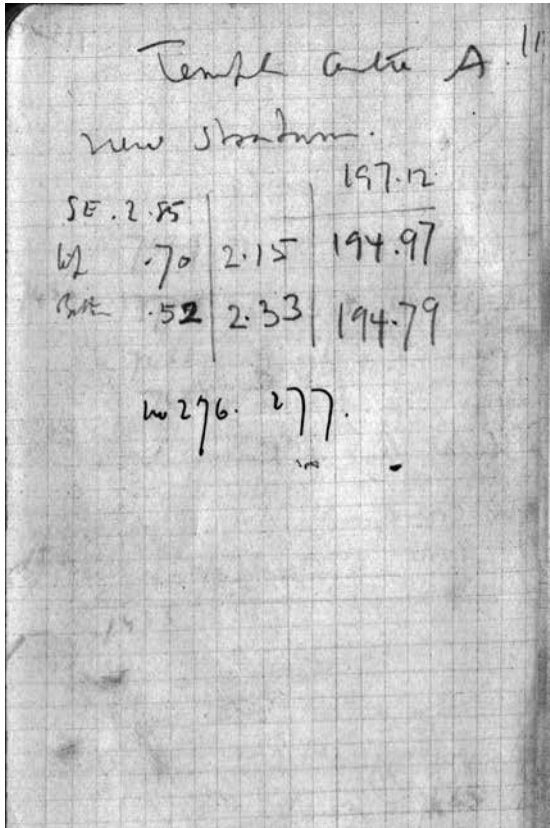 Temple Centre A. 11
new stratum.
197.12
SE. 2.85
top .70 2.15 194.97
Bottom .52 2.33 194.79
no 276. 277.